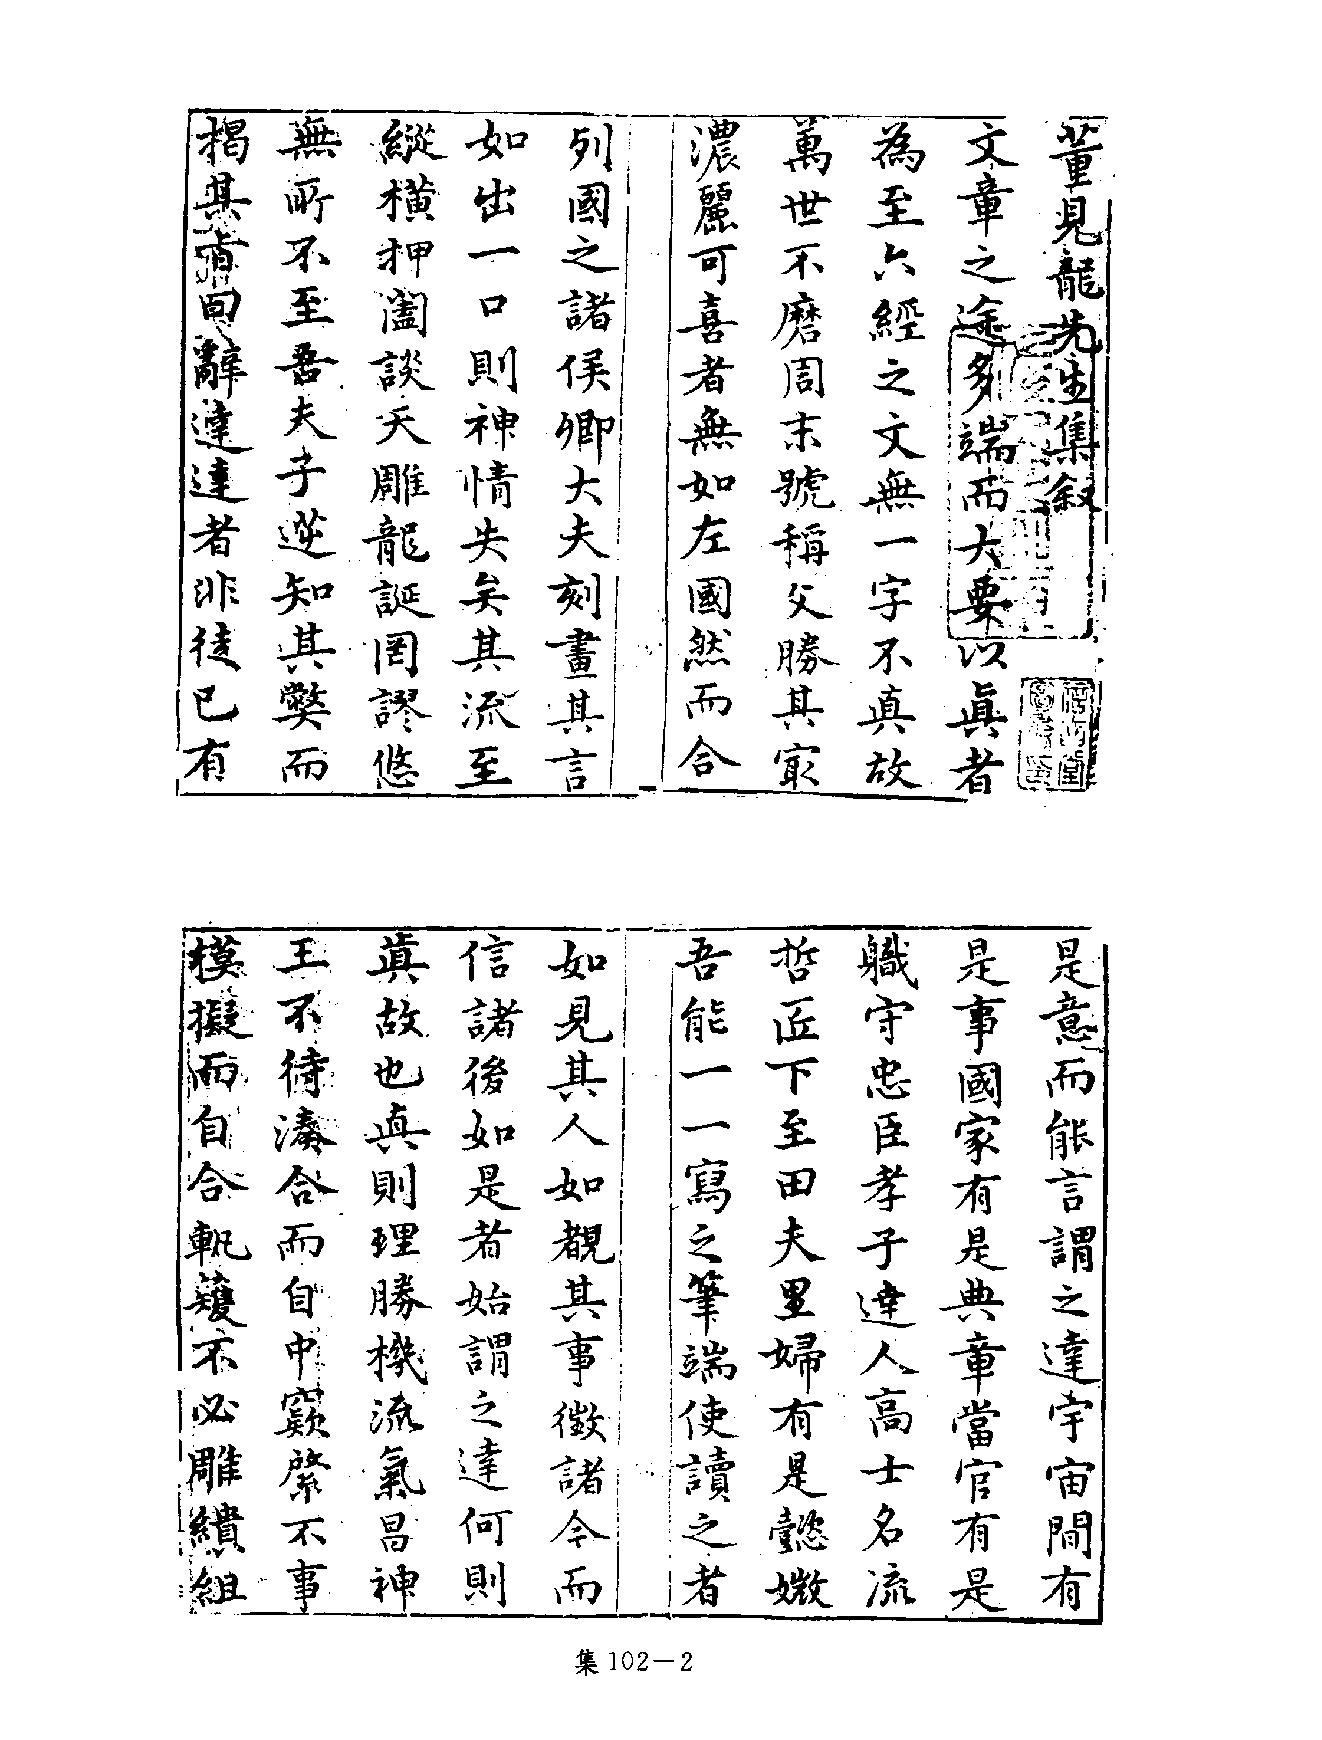 董見龍先生集叙
文章之途多端而大要以眞者
為至六經之文無一字不真故
萬世不磨周末號稱文勝其㝡
濃麗可喜者無如左國然而合
列國之諸侯卿大夫刻畫其言
如出一口則神情失矣其流至
縱橫押闔談天雕龍誕罔謬悠
無所不至吾夫子逆知其獘而
揭其旨曰辭達達者非徒已有
是意而能言謂之達宇宙間有
是事國家有是典章當官有是
職守忠臣孝子達人高士名流
哲匠下至田夫里婦有是懿媺
吾能一一寫之筆端使讀之者
如見其人如覩其事徵諸今而
信諸後如是者始謂之達何則
真故也真則理勝機流氣昌神
王不待湊合而自中窾綮不事
模擬而自合軌籆不必雕繢組
集102－2